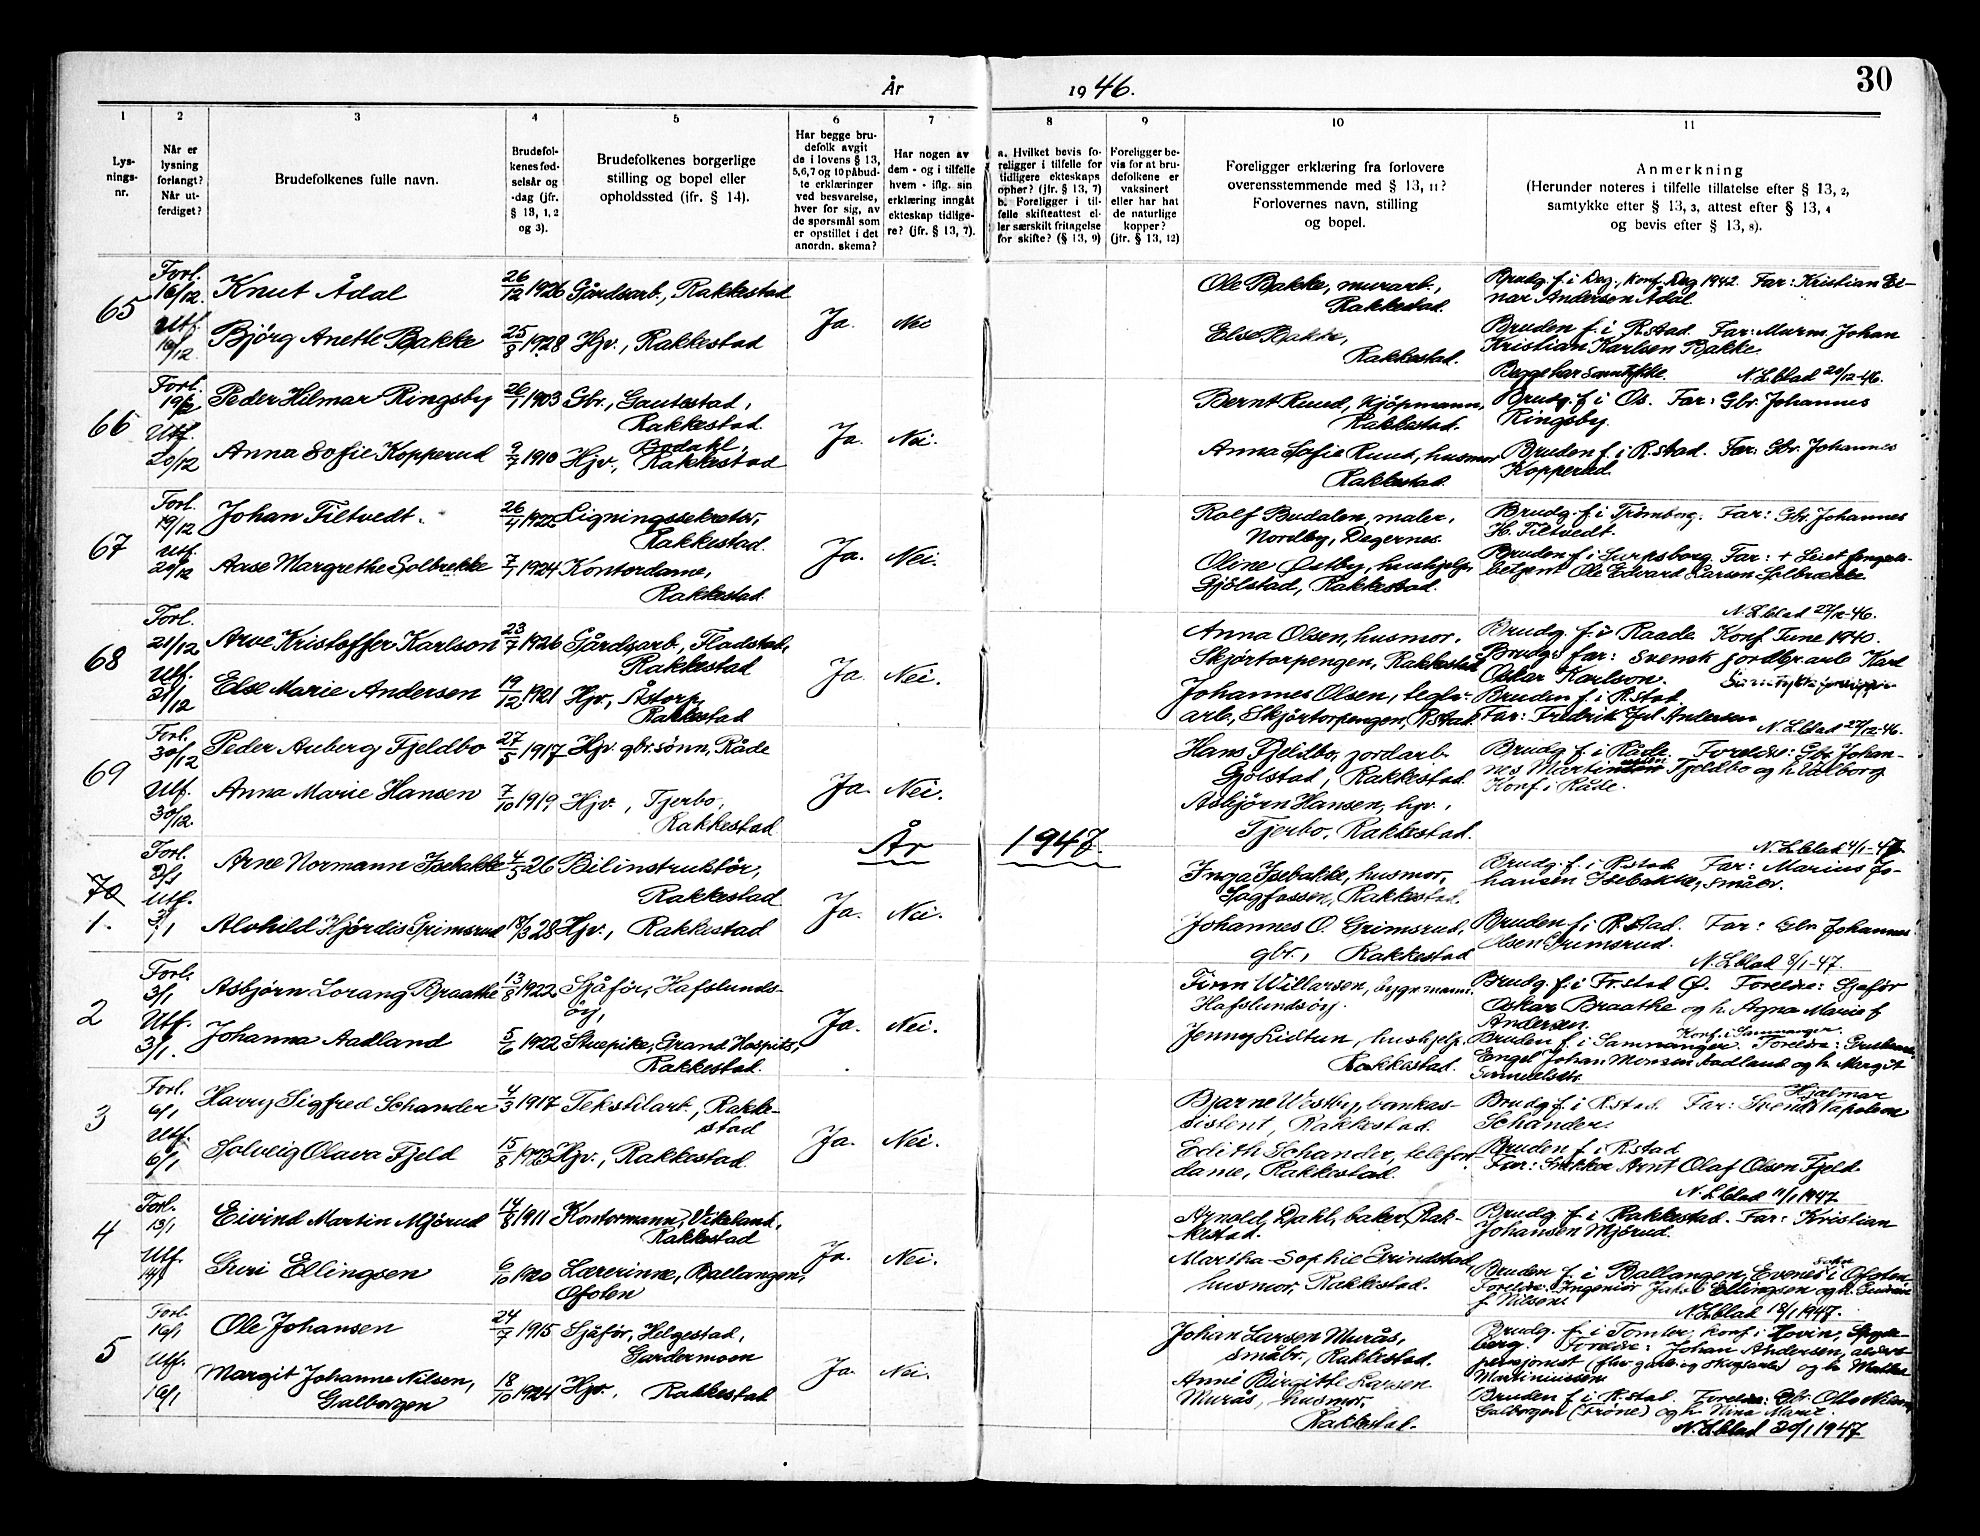 30
År 1946.
1 2 3 4 5 6 7 8 9 10 11
Lys-
nings-
nr.
Når er
lysning
forlangt?
Når ut-
ferdiget?
Brudefolkenes fulle navn.
Brudefol-
kenes fød-
selsår og
-dag (jfr.
§ 13, 1, 2
og 3).
Brudefolkenes borgerlige
stilling og bopel eller
opholdssted (jfr. § 14).
Har begge bru-
defolk avgit
de i lovens § 13,
5, 6, 7 og 10 påbud-
te erklæringer
ved besvarelse,
hver for sig, av
de spørsmål som
er opstillet i det
anordn. skema?
Har nogen av
dem - og i tilfelle
hvem - iflg. sin
erklæring inngått
ekteskap tidlige-
re? (jfr. § 13, 7).
a. Hvilket bevis fo-
religger i tilfelle for
tidligere ekteskaps
ophør? (jfr. § 13, 7)
b. Foreligger i til-
felle skifteattest el-
ler særskilt fritagelse
for skifte? (§ 13, 9)
Foreligger be-
vis for at bru-
defolkene er
vaksinert
eller har hat
de naturlige
kopper?
(jfr. § 13, 12)
Foreligger erklæring fra forlovere
overensstemmende med § 13, 11?
Forlovernes navn, stilling
og bopel.
Anmerkning
(Herunder noteres i tilfelle tillatelse efter § 13, 2,
samtykke efter § 13, 3, attest efter § 13, 4
og bevis efter § 13, 8).
65
Forl.
16/12.
Utf.
16/12.
Knut Ådal
26/12 1926
Gårdsarb., Rakkestad
Bjørg Anette Bakke
25/8 1928
Hjv., Rakkestad
Ja. Nei
Ole Bakke, murarb.,
Rakkestad.
Else Bakke,
Rakkestad.
Brudg. f. i Deg., konf. Deg 1942. Far: Kristian Ei-
nar Andersen Ådal
Bruden f. i R.stad. Far: Murm. Johan
Kristian Karlsen Bakke.
Begge har samtykke. N. L.blad 20/12-46.
66
Forl.
19/12
Utf.
20/12
Peder Hilmar Ringsby
26/7 1903
Gbr., Gautestad,
Rakkestad.
Anna Sofie Kopperud
9/7 1910
Bodahl,
Hjv., Rakkestad
Ja. Nei.
Bernt Ruud, kjøpmann,
Rakkestad.
Anna Sofie Ruud, husmor
Rakkestad.
Brudg. f. i Os. Far: Gbr. Johannes
Ringsby.
Bruden f. i R.stad. Far: Gbr. Johannes
Kopperud.
67
Forl.
19/12
Utf.
20/12
Johan Tiltvedt.
26/4 1922
Ligningssekretær,
Rakkestad.
Aase Margrethe Solbrekke
7/7 1924
Kontordame,
Rakkestad.
Ja. Nei.
Rolf Budalen, maler,
Nordby, Degernes.
Oline Østby, hushjelp,
Gjølstad, Rakkestad.
Brudg. f. i Trømborg. Far: Gbr. Johannes
H. Tiltvedt.
Bruden f. i Sarpsborg. Far: +
betjent Ole Edvard Larsen Solbrække.
N. L.blad 27/12-46.
68
Forl.
21/12
Utf.
21/12
Arve Kristoffer Karlson
23/7 1926
Gårdsarb., Fladstad,
Rakkestad
Else Marie Andersen
19/12 1921
Hjv., Åstorp,
Rakkestad
Ja. Nei.
Anna Olsen, husmor,
Skjørtorpengen, Rakkestad
Johannes Olsen, tegl-
arb., Skjørtorpengen, R.stad.
Brudg. f. i Raade Konf. Tune 1940.
Brudg. far: svensk jordbr.arb. Karl
Oskar Karlson.
Bruden f. i R.stad.
Far: Fredrik Andersen
N. L.blad 27/12-46.
69
Forl.
30/12
Utf.
30/12.
Peder Auberg Fjeldbo
27/5 1917
Hjv. gbr.sønn, Råde
Anna Marie Hansen
7/10 1919
Hjv., Tjerbo,
Rakkestad
Ja. Nei.
Hans Fjeldbo, jordarb.
Gjølstad, Rakkestad.
Asbjørn Hansen, hjv.,
Tjerbo, Rakkestad.
Brudg. f. i Råde. Foreldre: Gbr. Johan-
nes Fjeldbo og h. Valborg
Konf. i Råde.
N. L.blad 4/1-47
År 1947.
70
1.
Forl.
2/1
Utf.
3/1
Arne Normann Isebakke
4/5 26
Bilinstruktør,
Rakkestad
Alvhild Hjørdis Grimsrud
18/3 28
Hjv., Rakkestad
Ja. Nei.
Inga Isebakke, husmor,
Sagfossen, Rakkestad.
Johannes O. Grimsrud,
gbr., Rakkestad
Brudg. f. i R.stad Far: Marius Jo-
hansen Isebakke, småbr.
Bruden f. i R.stad. Far: Gbr. Johannes
Olsen Grimsrud.
N. L.blad 8/1-47.
2
Forl.
3/1
Utf.
3/1.
Asbjørn Lorang Braathe
13/8 1922
Sjåfør, Hafslunds-
øy,
Johanna Aadland
5/6 1922
Stuepike, Grand Hospits,
Rakkestad.
Ja. Nei.
Finn Willarsen, bygn.mann.
Hafslundsøy.
Jenny Lidtun, hushjelp.
Rakkestad.
Brudg. f. i Fr.stad Ø. Foreldre: Sjåfør
Oskar Braathe og h. Agna Marie f.
Andersen.
Konf. i Samnanger.
Bruden f. i Samnanger. Foreldre:
Engel Johan Monsen Aadland og h. Margit
3
Forl.
6/1
Utf.
6/1
Harry Sigfred Schander
4/3 1917
Tekstilarb., Rakke-
stad
Solveig Olava Fjeld
15/8 1923
Hjv., Rakkestad.
Ja. Nei.
Bjarne Westby, bankas-
sistent, Rakkestad.
Edith Schander, telefon-
dame, Rakkestad.
Hjalmar
Brudg. f. i R.stad. Far: Svend Napoleon
Schander.
Bruden f. i R.stad
Far: Snekker Arnt Olaf Olsen Fjeld.
N. L.blad 11/1 1947.
4
Forl.
13/1
Utf.
14/1
Eivind Martin Mjørud
14/8 1911
Kontormann, Vikeland,
Rakkestad
Guri Ellingsen
6/10 1920
Lærerinne, Ballangen,
Ofoten
Ja. Nei.
Arnold Dahl, baker, Rak-
kestad.
Martha-Sophie Grindstad,
husmor, Rakkestad.
Brudg. f. i Rakkestad. Far: Kristian
Johansen Mjørud.
Bruden f. i Ballangen, Evenes i Ofoten
Foreldre: Ingeniør Ellingsen og h.
f. Nilsen.
N. L.blad 18/1 1947.
5
Forl.
16/1
Utf.
16/1
Ole Johansen
24/7 1915
Sjåfør, Helgestad,
Gardermoen
Margit Johanne Nilsen,
Galborgen
18/10 1924
Hjv., Rakkestad
Ja. Nei.
Johan Larsen Murås,
småbr., Rakkestad.
Anne Birgitte Larsen
Murås, husmor,
Rakkestad.
Brudg. f. i Tomter, konf. i Hovin, Spyde-
berg. Foreldre: Johan Andersen,
Martiniussen
Bruden f. i R.stad. Foreldre: Gbr. Otto Nilsen
Galborgen (Trøne) og h. Nina Marie.
N. L.blad 20/1 1947